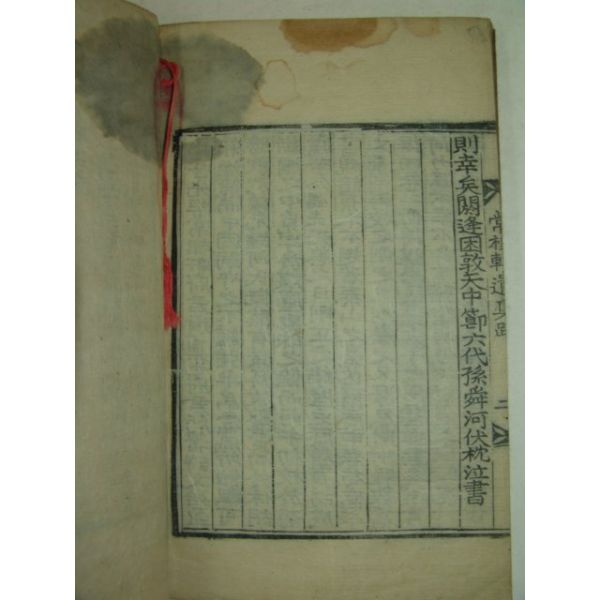 則幸矣閼逢困敦天中節六代孫舜河伏枕泣書
常棣軒遺眞跋
二